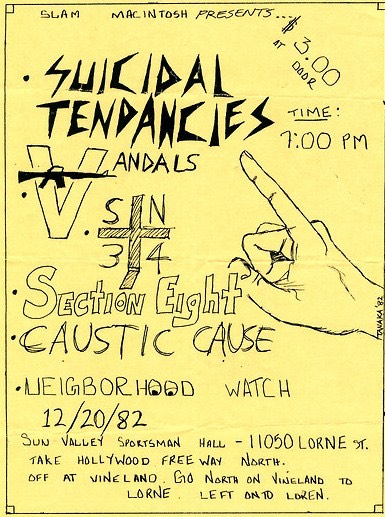 SLAM MACINTOSH PRESENTS....
$3.00
AT DOOR
SUICIDAL
TENDANCIES
TIME:
7:00 PM
VANDALS
SIN
34
SECTION EIGHT
CAUSTIC CAUSE
TANAKA '82
NEIGBORHOOD WATCH
12/20/82
SUN VALLEY SPORTSMAN HALL - 11050 LORNE ST.
TAKE HOLLYWOOD FREEWAY NORTH.
OFF AT VINELAND. GO NORTH ON VINELAND TO
LORNE. LEFT ONTO LOREN.